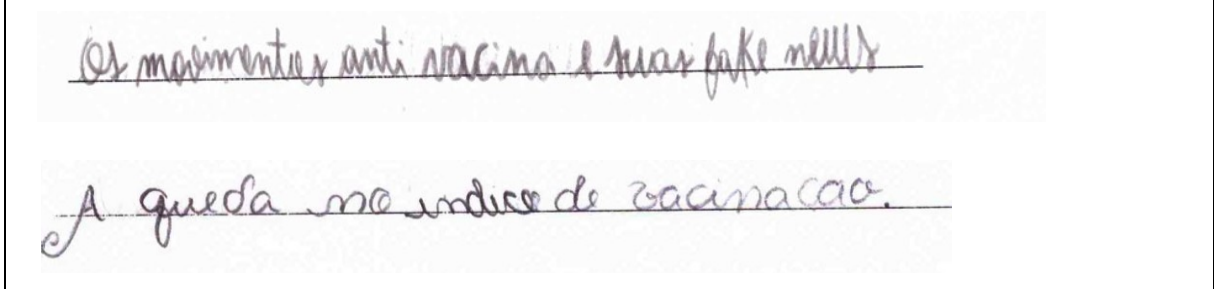 Os movimentos anti vacina e suas fake news
A queda no indice de vacinacao.